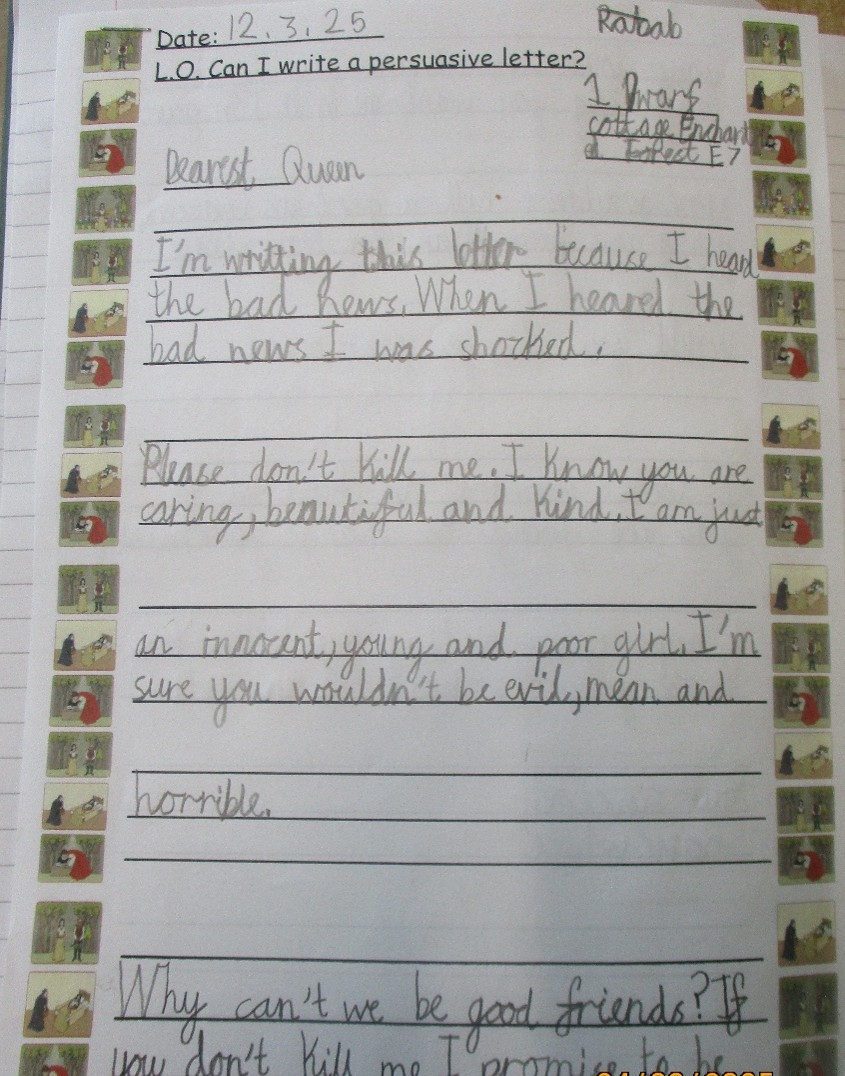 Rabab
Date: 12.3.25
L.O. Can I write a persuasive letter?
1 Dwarf
cottage Enchant
d Forest E7
Dearest Queen
I'm writting this letter because I heard
the bad news. When I heared the
bad news I was shocked.
Please don't kill me. I know you are
caring, beautiful and kind. I am just
an innocent, young and poor girl. I'm
sure you wouldn't be evil, mean and
horrible.
Why can't we be good friends? If
you don't kill me I promise to be